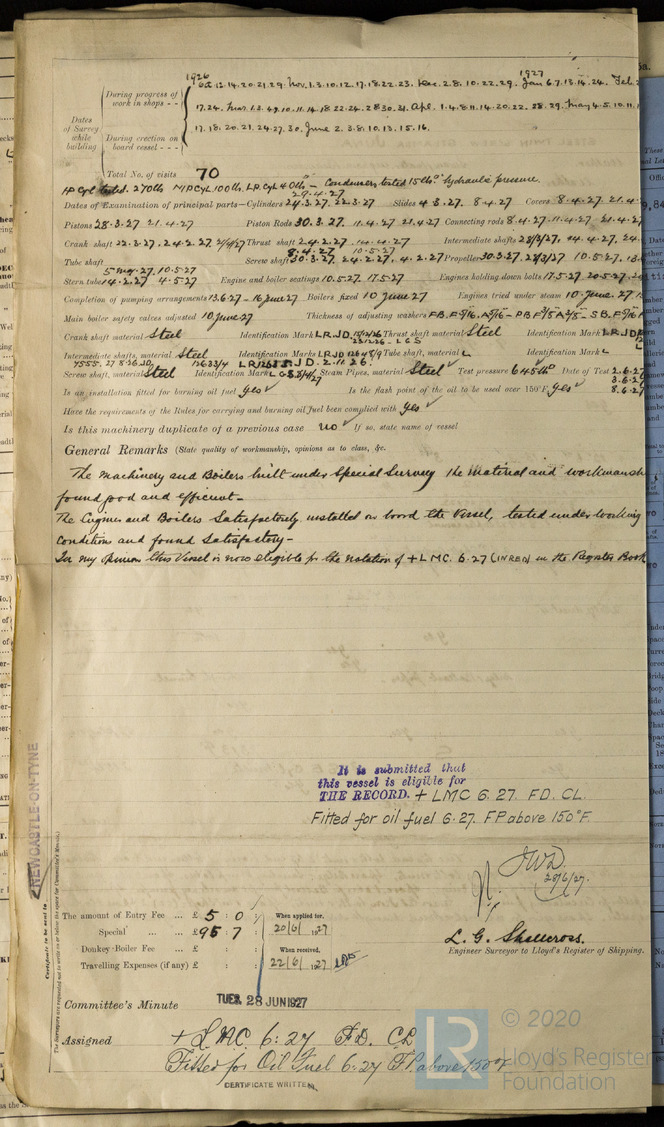 1926
1927
During progress of work in shops - -
Oct. 12. 14. 20. 21. 29. Nov. 1. 3. 10. 12. 17. 18. 22. 23. Dec. 2. 8. 10. 22. 29. Jan 6. 7. 13. 14. 24. Feb.
17. 24. Mar. 1. 2. 4. 9. 10. 11. 14. 18. 22. 24. 28. 30. 31. Apl. 1. 4. 8. 11. 14. 20. 22. 28. 29. May 4. 5. 10. 11.
Dates of Survey while building
During erection on board vessel - - -
17. 18. 20. 21. 24. 27. 30. June 2. 3. 8. 10. 13. 15. 16.
Total No. of visits 70
HP Cyl tested 270lbs MP Cyl 100lbs. LP Cyl 40lbs - Condensers tested 15lbs hydraulic pressure.
29.4.27
Dates of Examination of principal parts—Cylinders 24.3.27. 22.3.27 Slides 4.3.27. 8.4.27 Covers 8.4.27 21.4.
Pistons 28.3.27 21.4.27 Piston Rods 30.3.27. 11.4.27 21.4.27 Connecting rods 8.4.27. 11.4.27 21.4.27
Crank shaft 22.3.27. 24.2.27 Thrust shaft 24.2.27 14.4.27 Intermediate shafts 28/3/27. 14.4.27, 24.
8.4.27 10.5.27
Tube shaft Screw shaft 30.3.27. 24.2.27. 4.2.27 Propeller 30.3.27. 28/3/27 10.5.27. 13.
5 may. 27. 10.5.27
Stern tube 14.2.27 4.5.27 Engine and boiler seatings 10.5.27. 17.5.27 Engines holding down bolts 17.5.27. 20.5.27.
Completion of pumping arrangements 13.6.27 - 16 June 27 Boilers fixed 10 June 27 Engines tried under steam 10 June. 27
Main boiler safety valves adjusted 10 June 27 Thickness of adjusting washers
Crank shaft material Steel Identification Mark LR. JD. Thrust shaft material Steel Identification Mark LR. JD
LGS
Intermediate shafts, material Steel Identification Marks LR. JD Tube shaft, material Identification Mark
Screw shaft, material Steel Identification Mark LGS Steam Pipes, material Steel Test pressure 645lbs Date of Test 2.6.27
3.6.27
8.6.27
Is an installation fitted for burning oil fuel yes Is the flash point of the oil to be used over 150°F. yes
Have the requirements of the Rules for carrying and burning oil fuel been complied with yes
Is this machinery duplicate of a previous case no If so, state name of vessel
General Remarks (State quality of workmanship, opinions as to class, &c.
The Machinery and Boilers built under Special Survey the Material and workmansh
found good and efficient -
The Engines and Boilers Satisfactorily installed on board the Vessel, tested under working
Conditions and found Satisfactory -
In my Opinion this Vessel is now eligible for the notation of + LMC. 6.27 (IN RED) in the Register Book
It is submitted that
this vessel is eligible for
THE RECORD. + LMC 6.27. F.D. CL.
Fitted for oil fuel 6.27. F.P above 150°F.
JWD.
20/6/27.
NEWCASTLE-ON-TYNE
Certificate to be sent to
The Surveyors are requested not to write on or below the space for Committee's Minute.
The amount of Entry Fee ... £ 5 : 0 : When applied for,
Special ... ... £ 95 : 7 : 20/6/1927
Donkey Boiler Fee ... £ : : When received,
Travelling Expenses (if any) £ : : 22/6/1927
L. G. Shallcross.
Engineer Surveyor to Lloyd's Register of Shipping.
Committee's Minute TUES. 28 JUN 1927
Assigned + LMC 6:27 F.D. CL
Fitted for Oil Fuel 6:27 F.P. above 150°F
CERTIFICATE WRITTEN
LR
© 2020
Lloyd's Register
Foundation